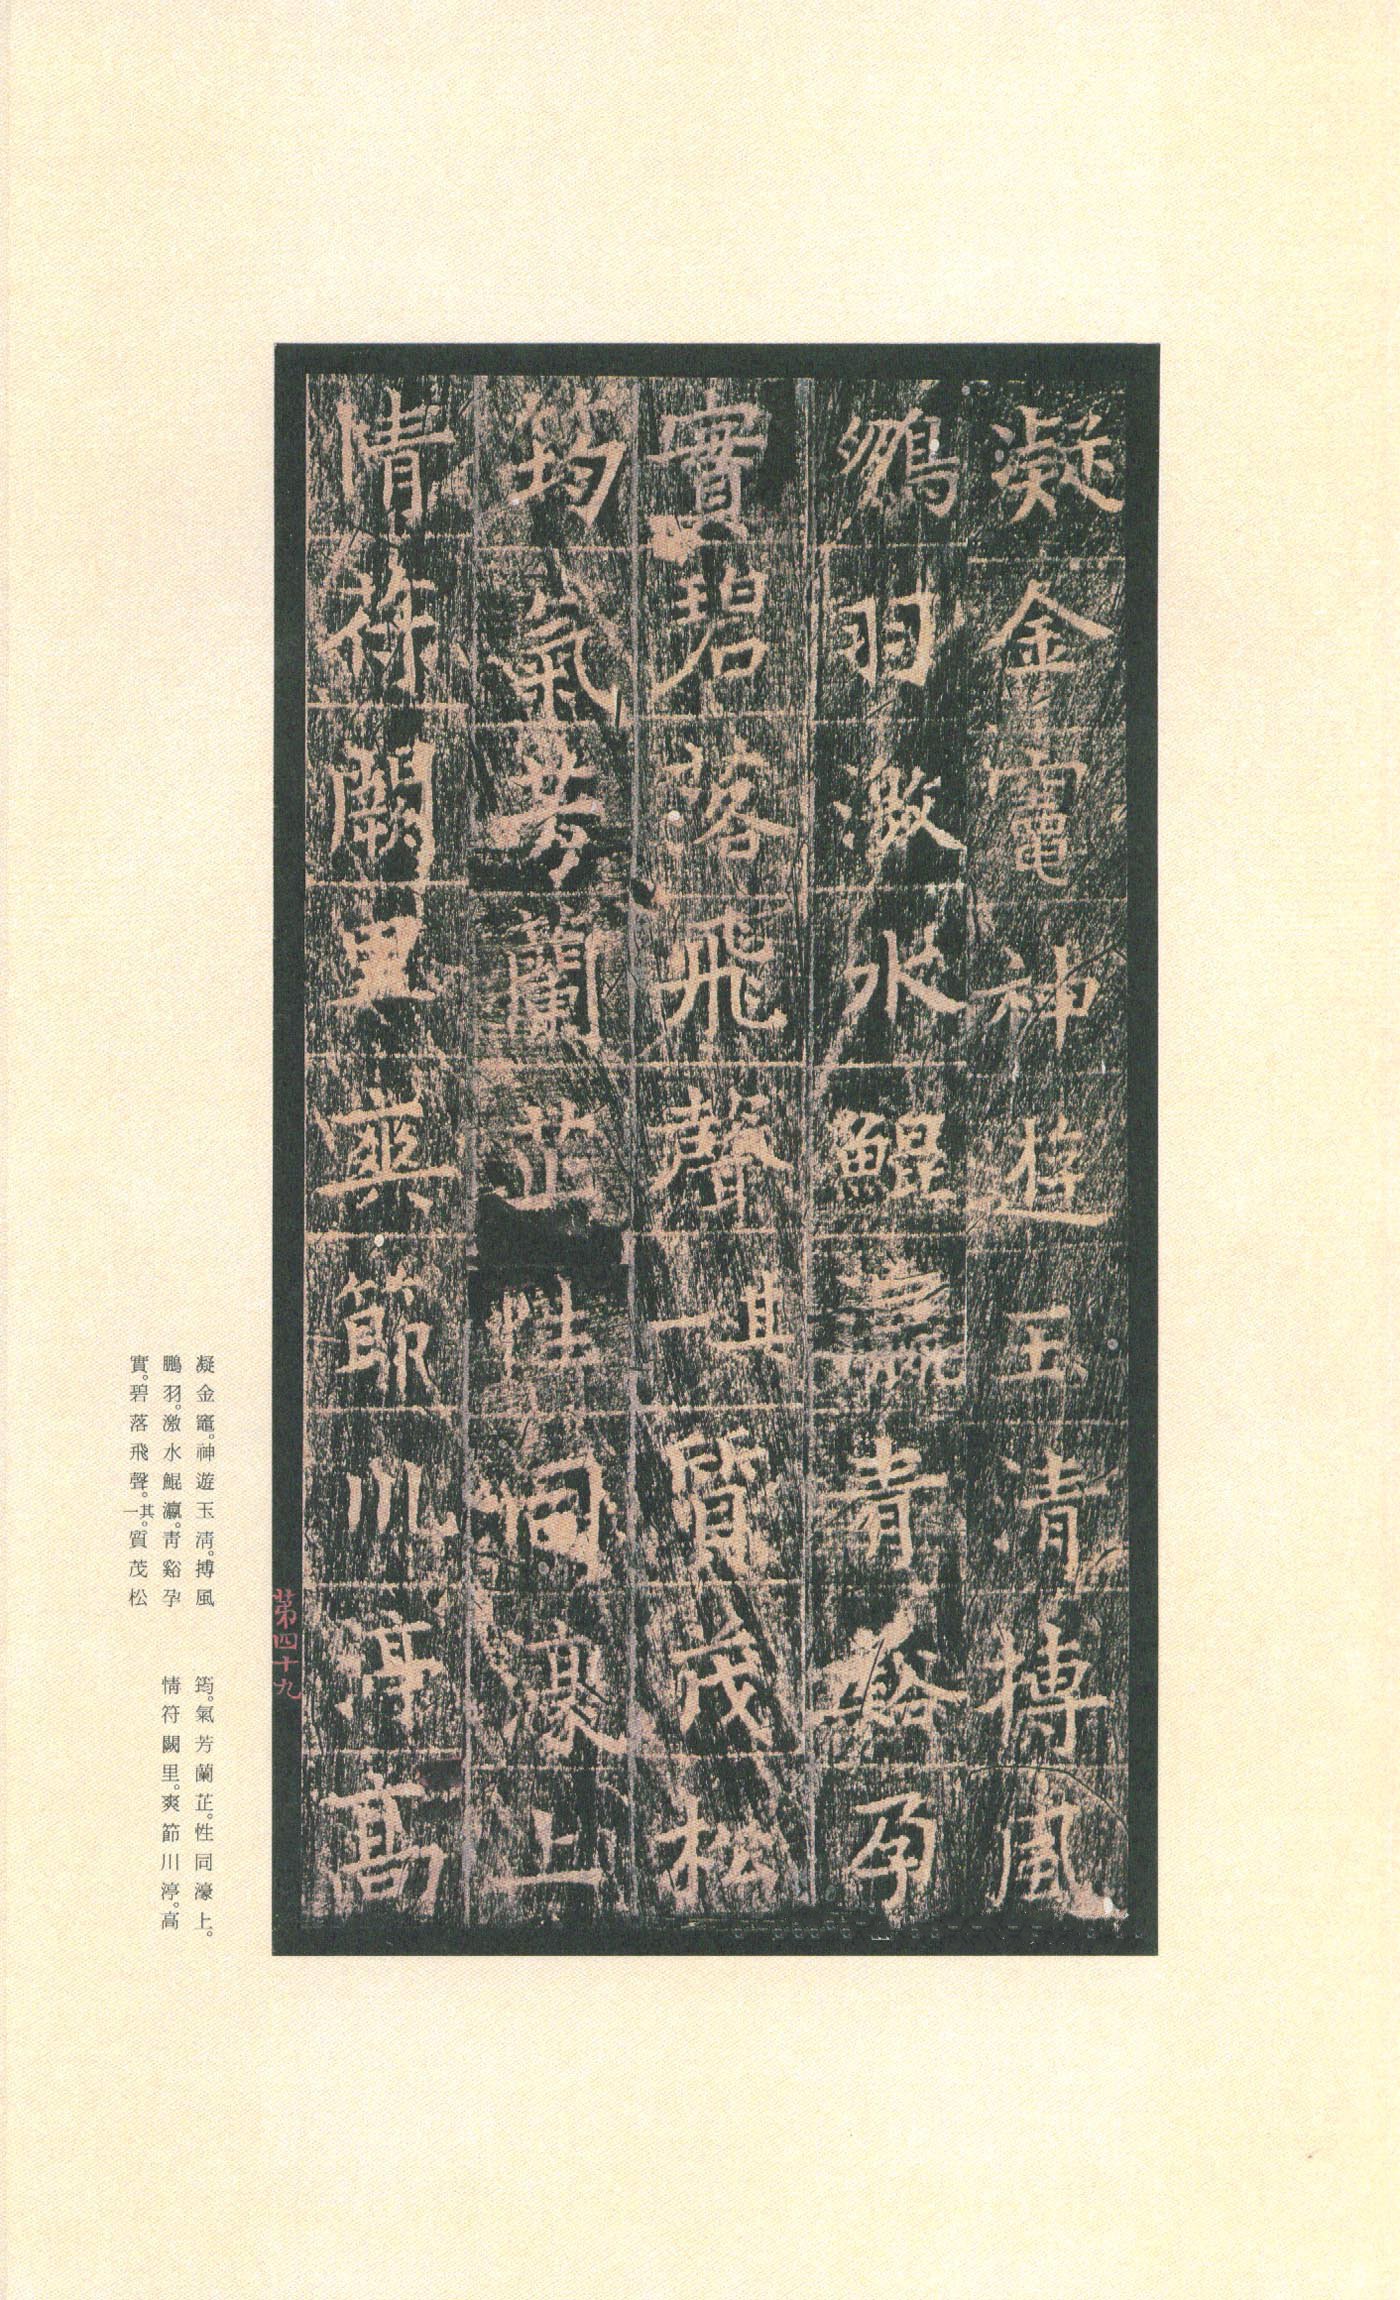 凝金竈神遊玉清搏風
鵬羽激水鯤瀛青谿孕
實碧落飛聲其一質茂松
筠氣芳蘭芷性同濠上
情符闕里爽節川渟高
第四十九
凝金竈。神遊玉淸。搏風
鵬羽。激水鯤瀛。靑谿孕
實。碧落飛聲。其一。質茂松
筠。氣芳蘭芷。性同濠上。
情符闕里。爽節川渟。高